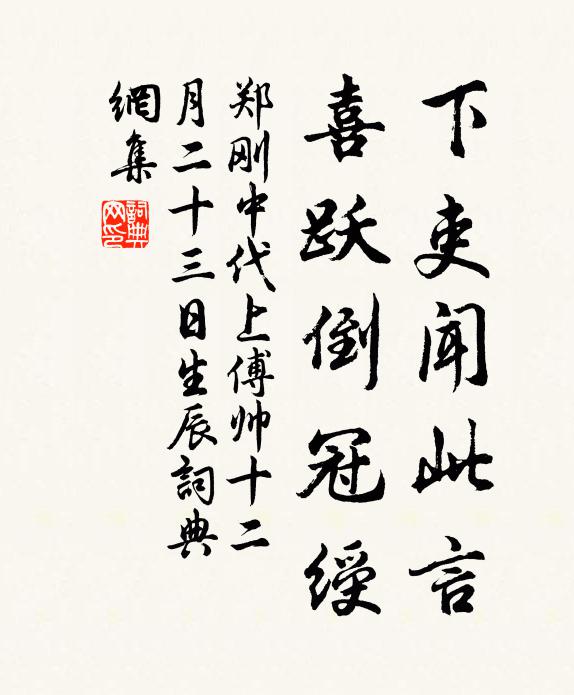 下吏闻此言
喜跃倒冠綬
郑刚中代上傅帅十二
月二十三日生辰詞典
網集
詞典
网印